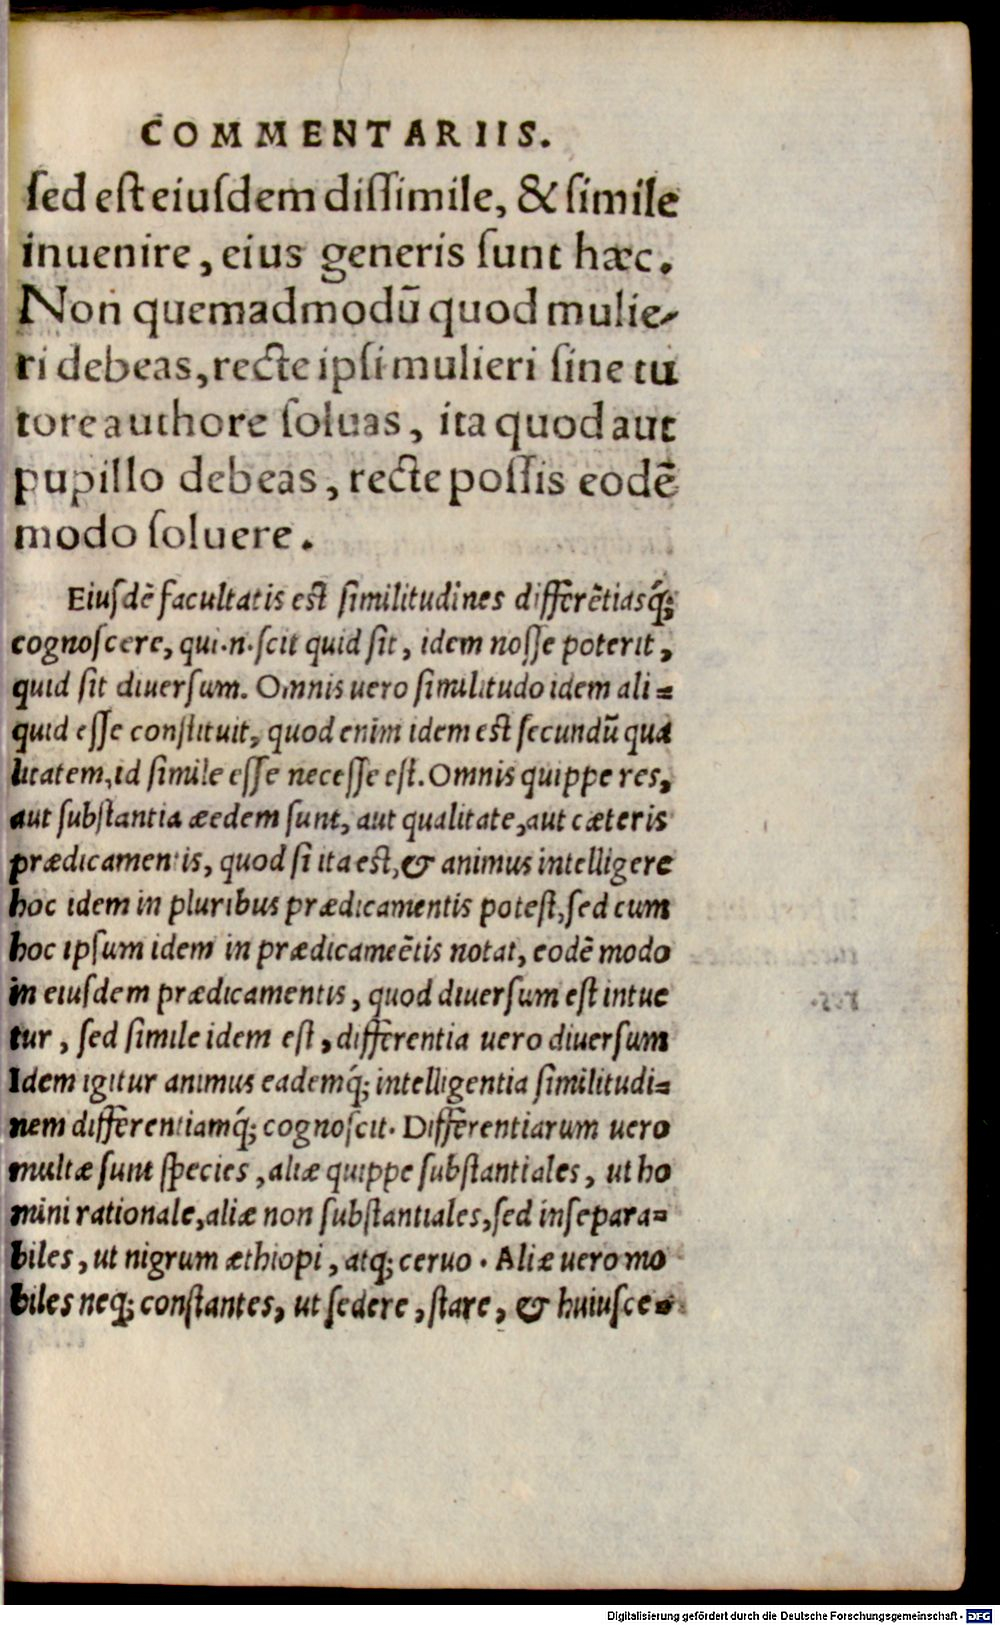 COMMENTARIIS.
sed est eiusdem dissimile, & simile
inuenire, eius generis sunt hæc.
Non quemadmodū quod mulie-
ri debeas, recte ipsi mulieri sine tu
tore authore soluas, ita quod aut
pupillo debeas, recte possis eodē
modo soluere.
Eiusdē facultatis est similitudines differētiasq́;
cognoscere, qui.n.scit quid sit, idem nosse poterit,
quid sit diuersum. Omnis uero similitudo idem ali=
quid esse constituit, quod enim idem est secundū qua
litatem, id simile esse necesse est. Omnis quippe res,
aut substantia æedem sunt, aut qualitate, aut cæteris
prædicamentis, quod si ita est, & animus intelligere
hoc idem in pluribus prædicamentis potest, sed cum
hoc ipsum idem in prædicameētis notat, eodē modo
in eiusdem prædicamentis, quod diuersum est intue
tur, sed simile idem est, differentia uero diuersum
Idem igitur animus eademq́; intelligentia similitudi=
nem differentiamq́; cognoscit. Differentiarum uero
multæ sunt species, aliæ quippe substantiales, ut ho
mini rationale, aliæ non substantiales, sed insepara=
biles, ut nigrum æthiopi, atq; ceruo. Aliæ uero mo
biles neq; constantes, ut sedere, stare, & huiusce=
Digitalisierung gefördert durch die Deutsche Forschungsgemeinschaft - DFG